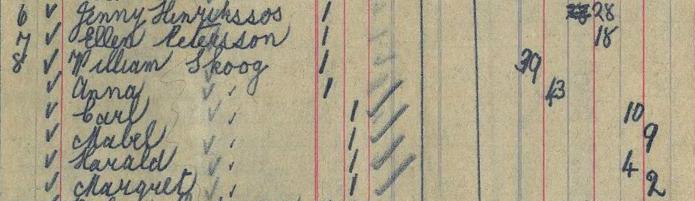 6 ✓ Jenny Henrikssos 1 28
7 ✓ Ellen Petersson 1 18
8 ✓ William Skoog 1 39
✓ Anna ✓ " 1 43
✓ Carl ✓ " 1 10
✓ Mabel ✓ " 1 9
✓ Harald ✓ " 1 4
✓ Margret ✓ " 1 2